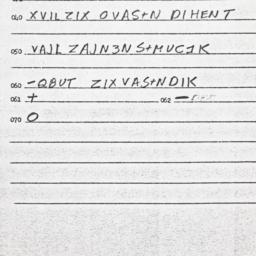 040 XVILZIX OVAS+N DIHENT
050 VAJL ZAJN3NS+MUCJK
060 -QBUT ZIXVAS+NDIK
061 + 062 -
070 O